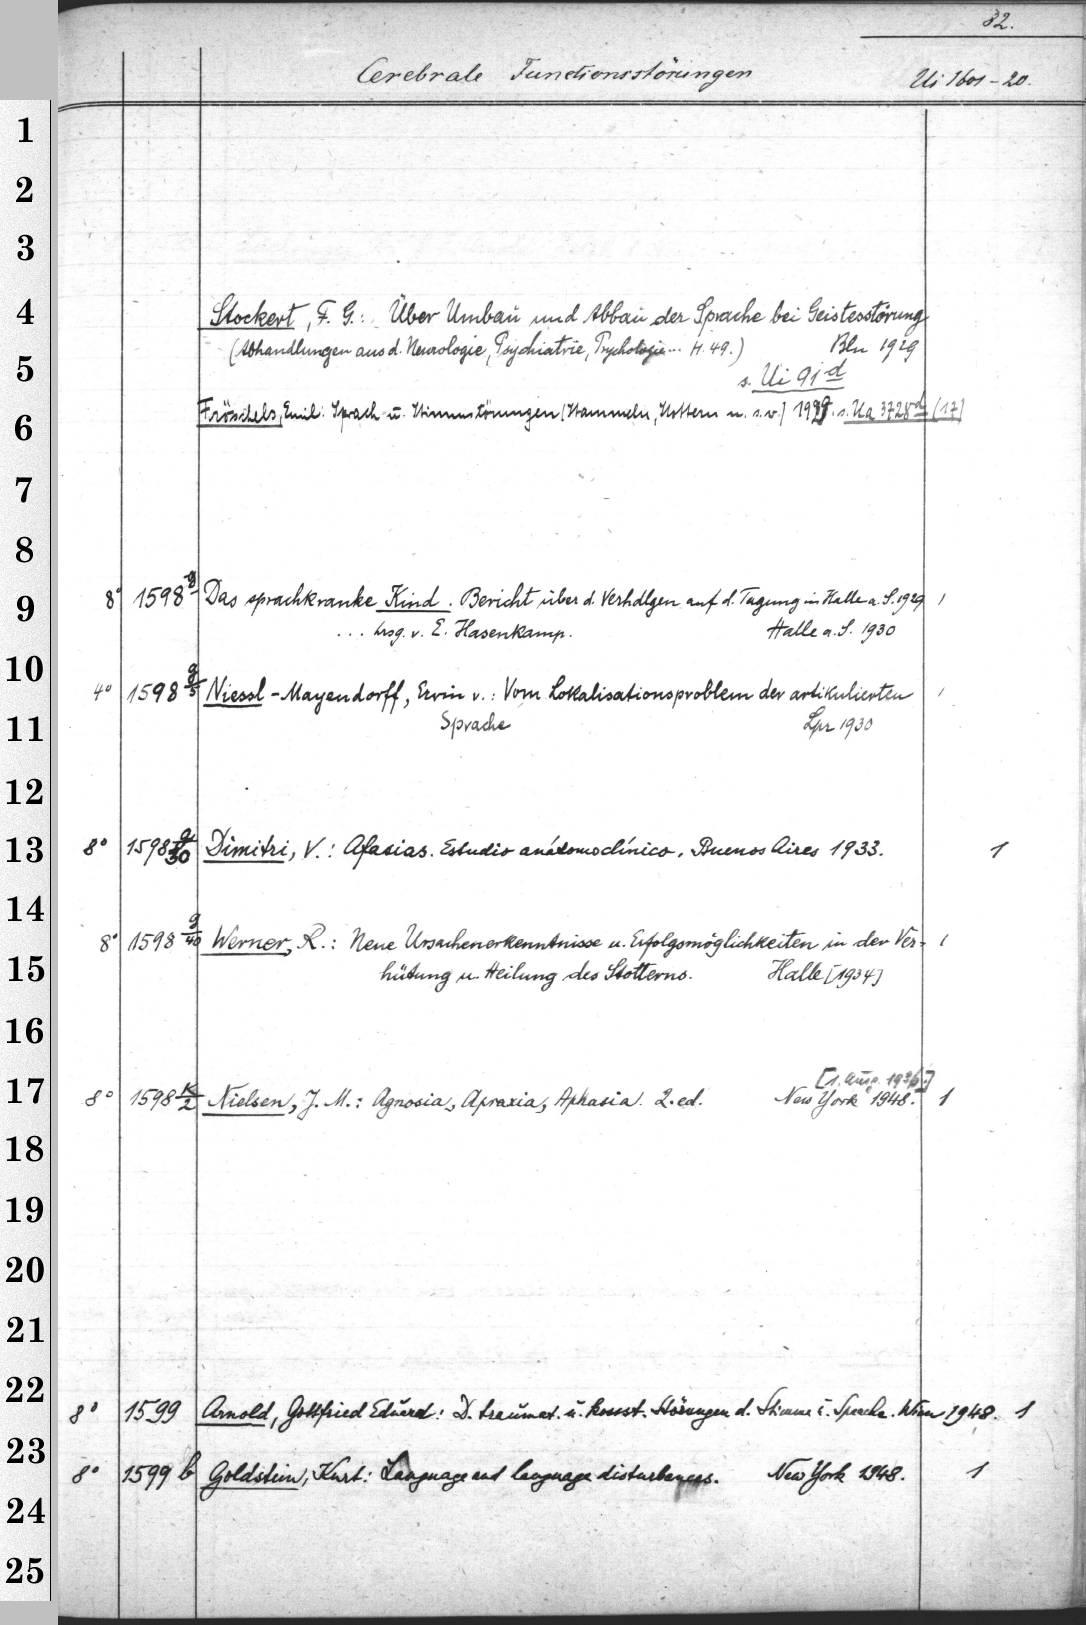 32.
Cerebrale Functionsstörungen Ui 1601-20.
1
2
3
4
Stockert, F. G.: Über Umbau und Abbau der Sprache bei Geistesstörung
(Abhandlungen aus d. Neurologie, Psychiatrie, Psychologie... H. 49.) Bln 1929
5
s. Ui 91 d
6
Fröschels, Emil: Sprach- u. Stimmstörungen (Stammeln, Stottern u. s. v.) 1929. s. Ua 3728 d (17)
7
8
9
8° 1598 g Das sprachkranke Kind. Bericht über d. Verhdlgen auf d. Tagung in Halle a. S. 1929 1
... hrsg. v. E. Hasenkamp. Halle a. S. 1930
10
4° 1598 g/5 Niessl-Mayendorff, Erwin v.: Vom Lokalisationsproblem der artikulierten 1
11
Sprache Lpz 1930
12
13
8° 1598 g/30 Dimitri, V.: Afasias. Estudio anátomoclínico. Buenos Aires 1933. 1
14
8° 1598 g/40 Werner, R.: Neue Ursachenerkenntnisse u. Erfolgsmöglichkeiten in der Ver- 1
15
hütung u. Heilung des Stotterns. Halle [1934]
16
17
[1. Ausg. 1936.]
8° 1598 K/2 Nielsen, J. M.: Agnosia, Apraxia, Aphasia. 2. ed. New York 1948. 1
18
19
20
21
22
8° 1599 Arnold, Gottfried Eduard: D. traumat. u. konst. Störungen d. Stimme u. Sprache. Wien 1948. 1
23
8° 1599 b Goldstein, Kurt: Language and language disturbances. New York 1948. 1
24
25